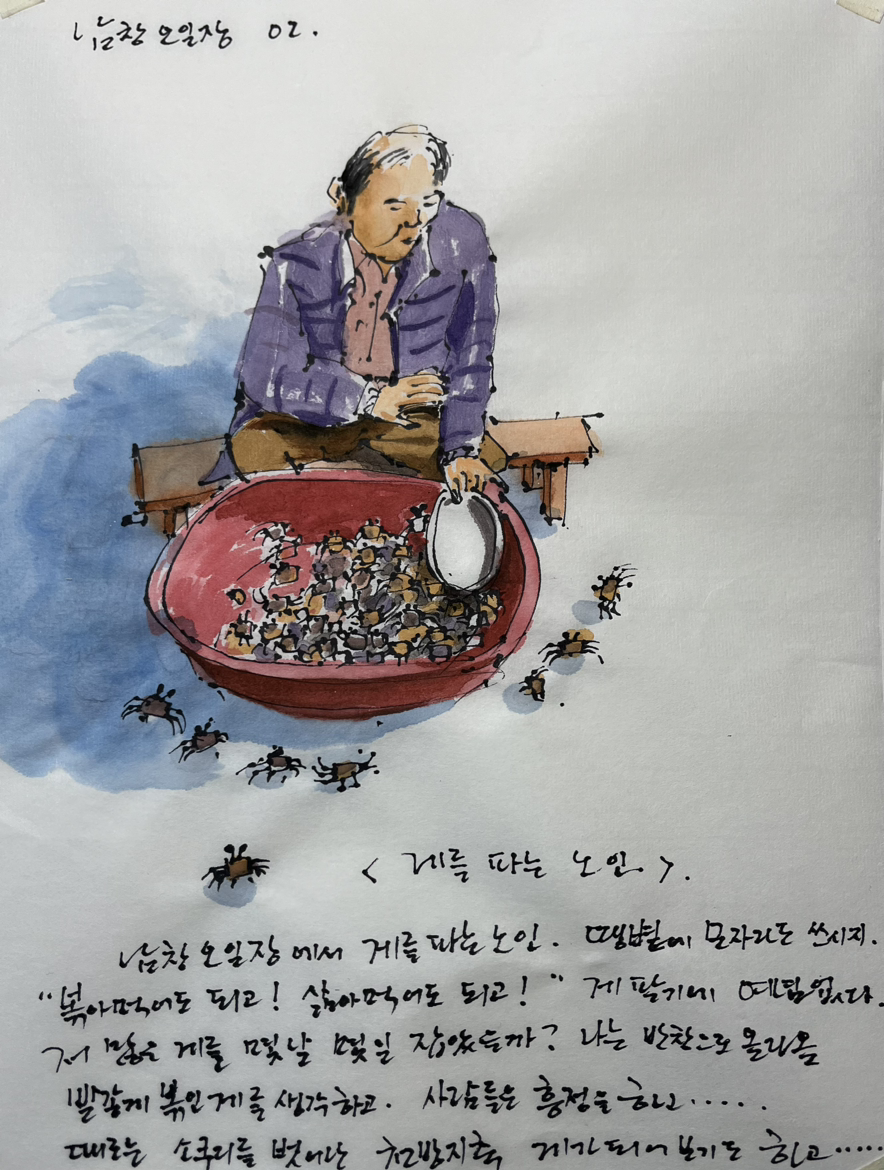 남창오일장 02.
< 게를 파는 노인 >.
남창오일장에서 게를 파는 노인. 땡볕에 모자라도 쓰시지.
"볶아먹어도 되고! 삶아먹어도 되고!" 게 팔기에 여념없다.
저 많은 게를 몇날 몇일 잡았을까? 나는 반찬으로 올라올
빨갛게 볶인 게를 생각하고. 사람들은 흥정을 하고.....
때로는 소쿠리를 벗어난 천방지축 게가 되어 보기도 하고.....